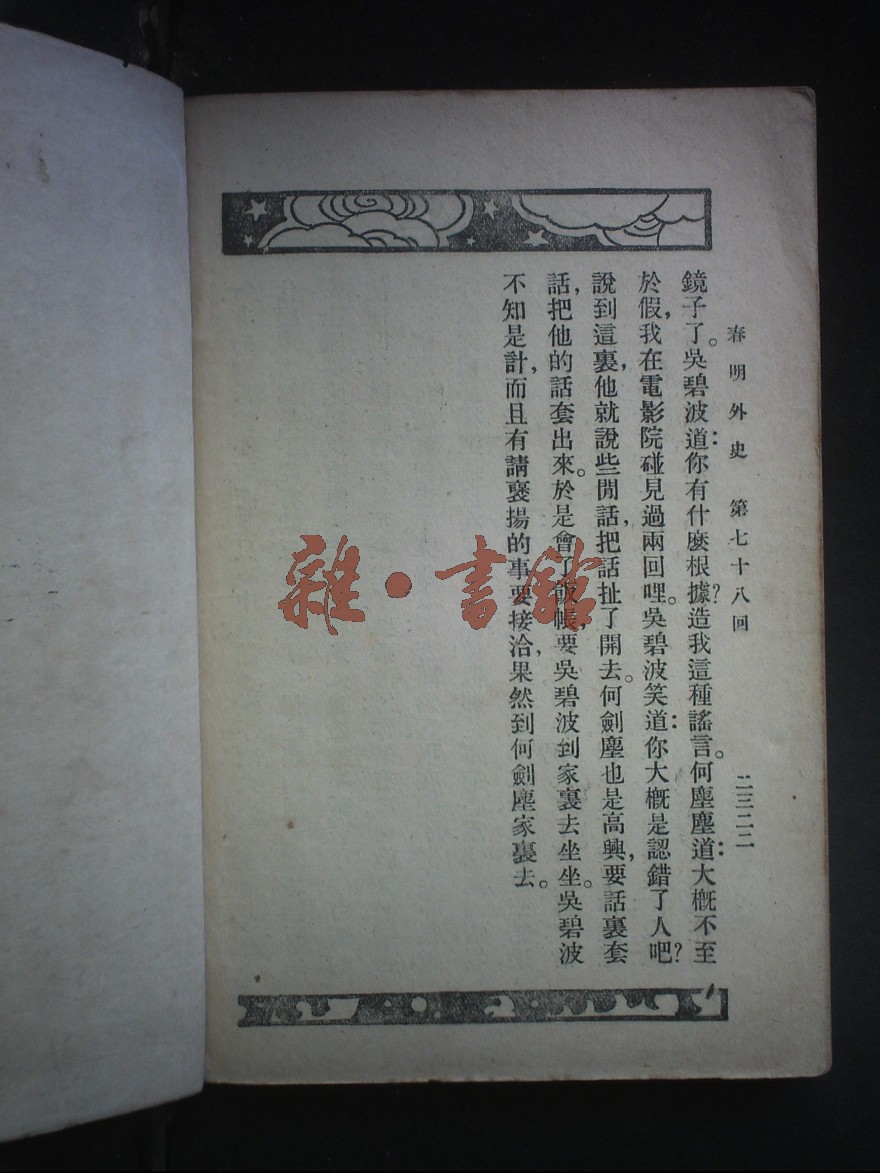 春明外史　第七十八回　二三二二
鏡子了。吳碧波道：你有什麼根據？造我這種謠言。何塵塵道：大概不至
於假，我在電影院碰見過兩回哩。吳碧波笑道：你大概是認錯了人吧？
說到這裏，他就說些閒話，把話扯了開去。何劍塵也是高興，要話裏套
話，把他的話套出來。於是會了飯帳，要吳碧波到家裏去坐坐。吳碧波
不知是計，而且有請襃揚的事要接洽，果然到何劍塵家裏去。
雜·書館